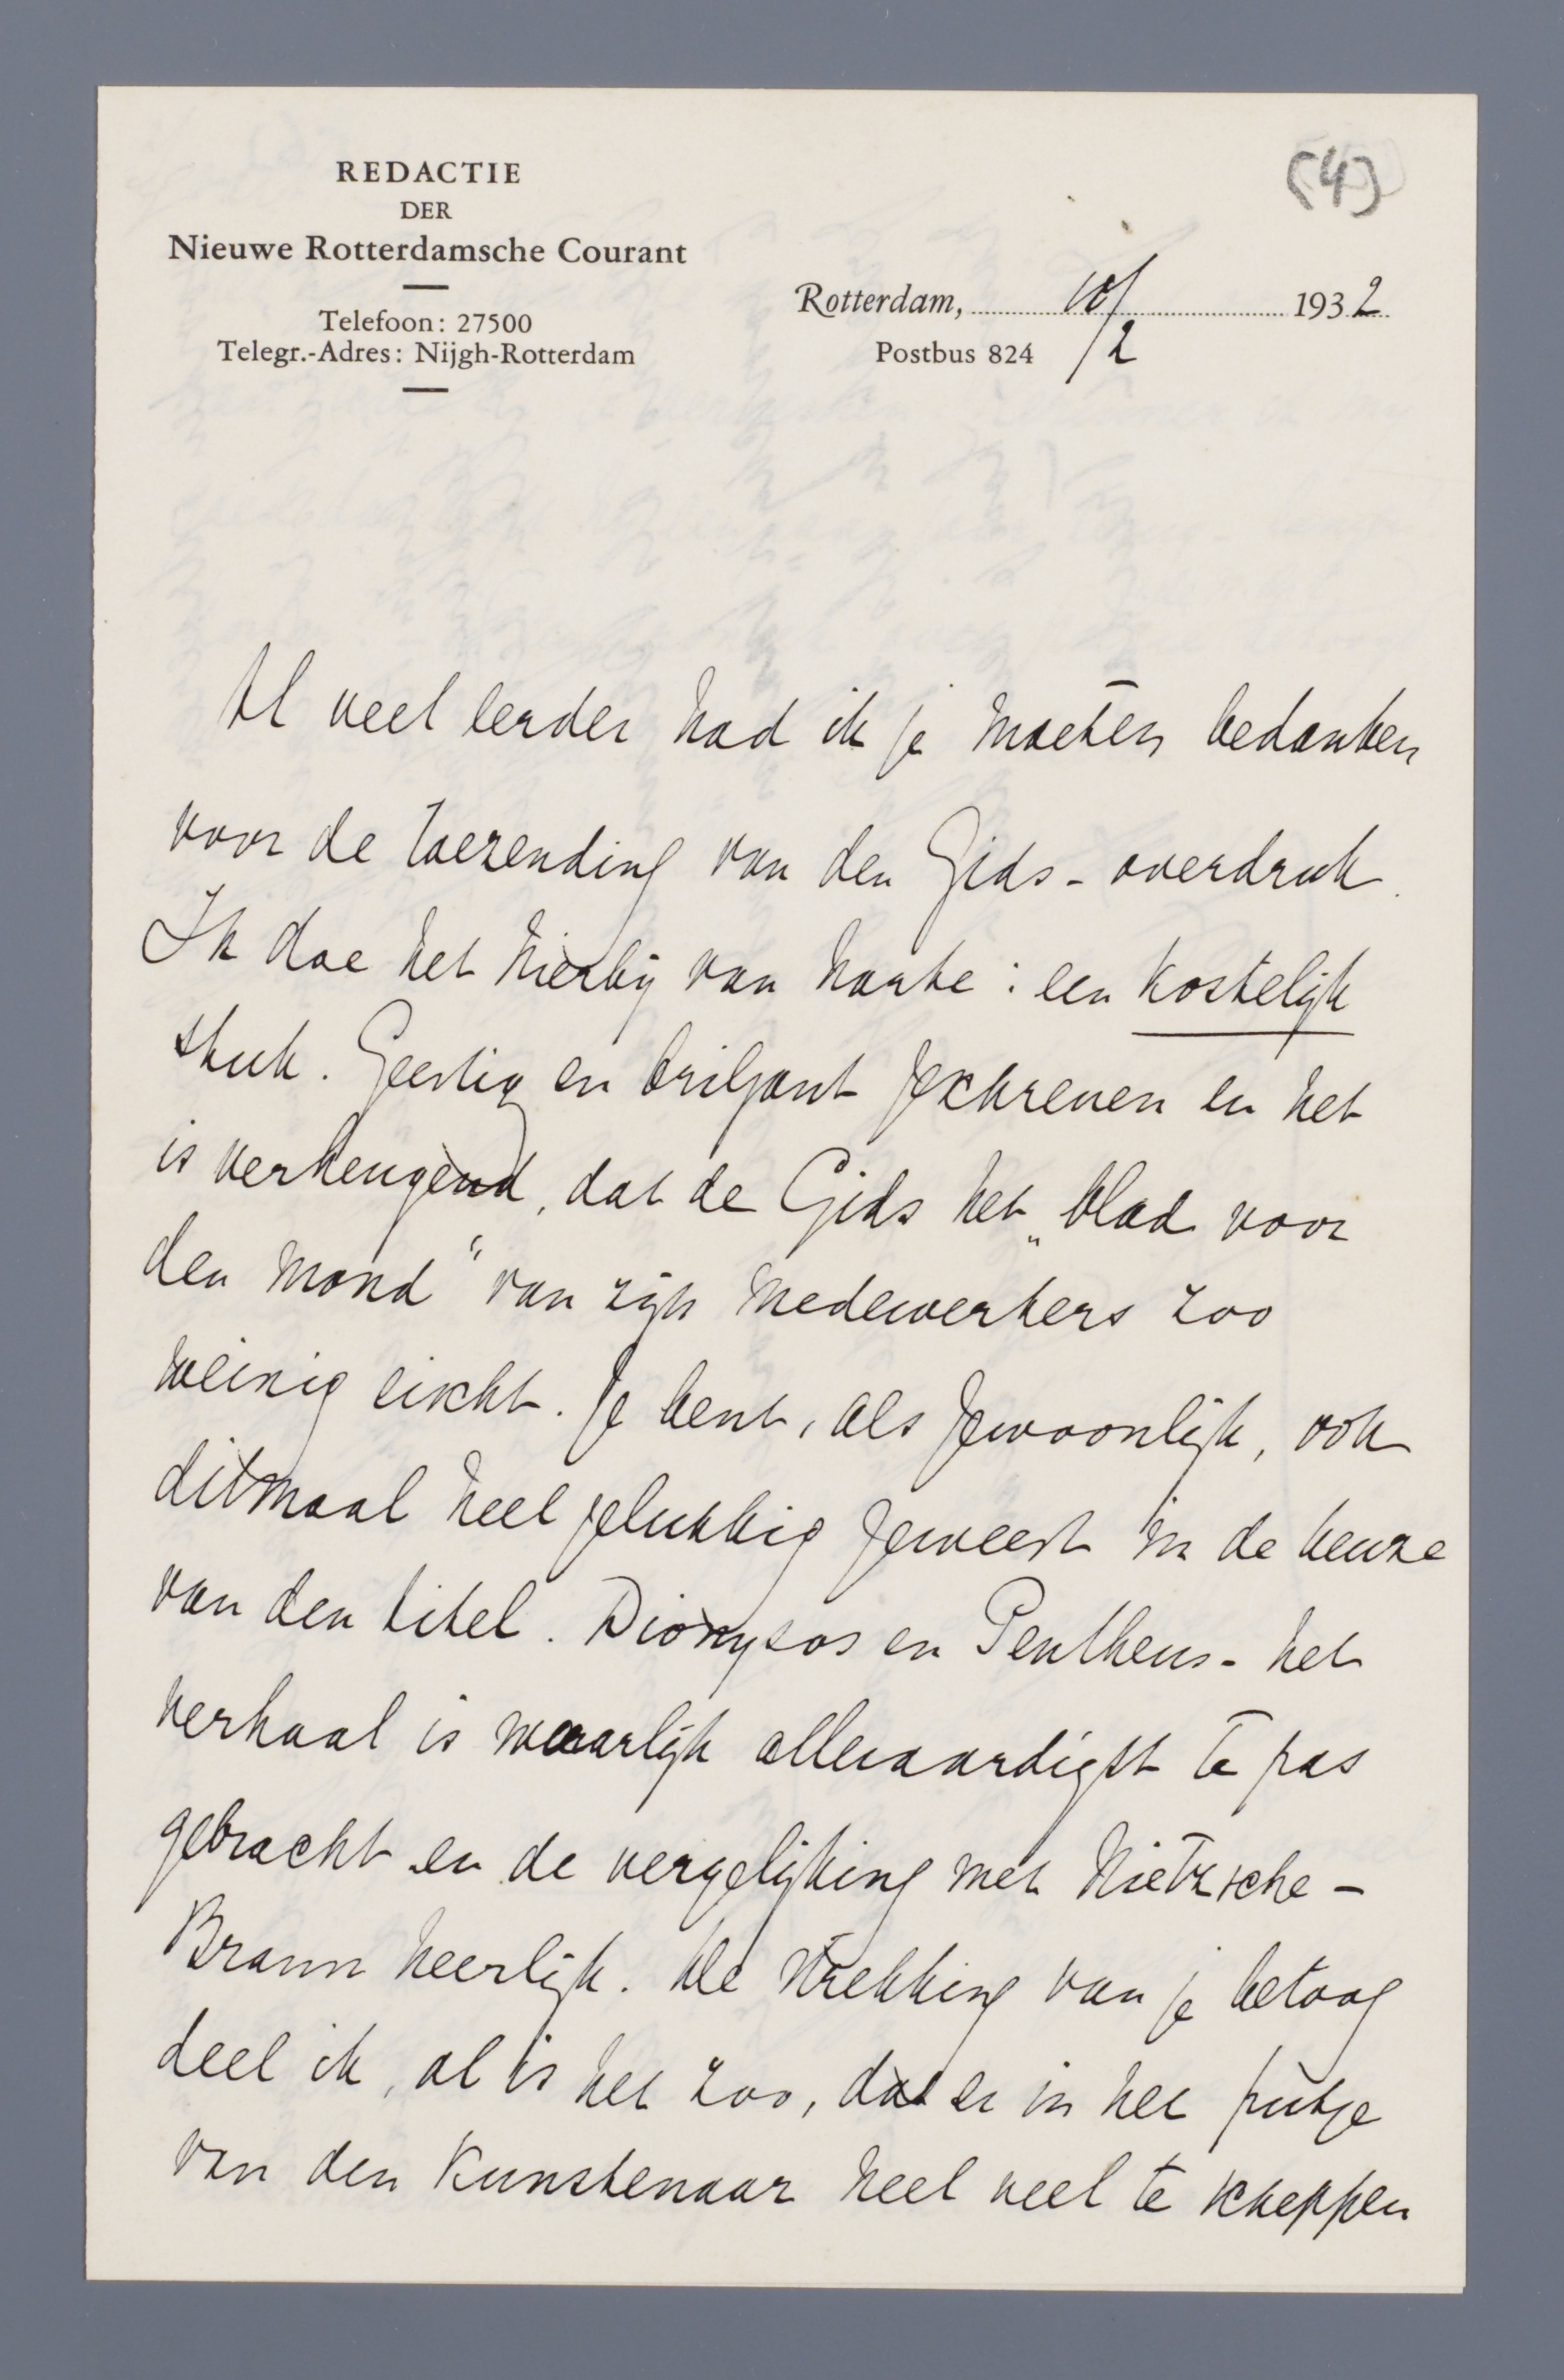 (4)
REDACTIE
DER
Nieuwe Rotterdamsche Courant
Telefoon: 27500
Telegr.-Adres: Nijgh-Rotterdam
Rotterdam, 10/2 1932
Postbus 824
Al veel eerder had ik je moeten bedanken
voor de toezending van den Gids-overdruk.
Ik doe het hierbij van harte: een kostelijk
stuk. Geestig en briljant geschreven en het
is verheugend, dat de Gids het „blad voor
den mond" van zijn medewerkers zoo
weinig eischt. Je bent, als gewoonlijk, ook
ditmaal heel gelukkig geweest in de keuze
van den titel. Dionysos en Pentheus - het
verhaal is waarlijk allervaardigst te pas
gebracht en de vergelijking met Nietzsche -
Braun heerlijk. De strekking van je betoog
deel ik, al is het zoo, dat er in het putje
van den kunstenaar heel veel te scheppen